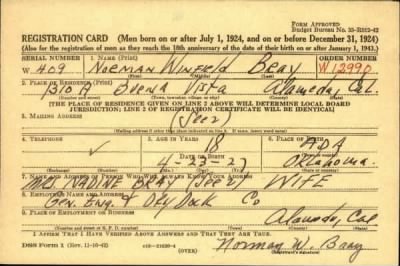 FORM APPROVED
Budget Bureau No. 33-R112-42
REGISTRATION CARD (Men born on or after July 1, 1924, and on or before December 31, 1924)
(Also for the registration of men as they reach the 18th anniversary of the date of their birth on or after January 1, 1943.)
SERIAL NUMBER 1. NAME (Print) ORDER NUMBER
W 409 NORMAN WINFIELD BRAY W12990
(First) (Middle) (Last)
2. PLACE OF RESIDENCE (Print)
Buena Vista Alameda Cal.
(Number and street) (Town, township, village, or city) (County) (State)
[THE PLACE OF RESIDENCE GIVEN ON LINE 2 ABOVE WILL DETERMINE LOCAL BOARD
JURISDICTION; LINE 2 OF REGISTRATION CERTIFICATE WILL BE IDENTICAL]
3. MAILING ADDRESS
(See 2)
4. TELEPHONE 5. AGE IN YEARS 6. PLACE OF BIRTH
18 ADA
DATE OF BIRTH
4-23-27 Oklahoma.
7. NAME AND ADDRESS OF PERSON WHO WILL ALWAYS KNOW YOUR ADDRESS
MRS. NADINE BRAY (See 2) WIFE
8. EMPLOYER'S NAME AND ADDRESS
Gen. Eng. & Dry Dock Co
9. PLACE OF EMPLOYMENT OR BUSINESS
Alameda, Cal
(Number and street or R. F. D. number) (Town) (County) (State)
I AFFIRM THAT I HAVE VERIFIED ABOVE ANSWERS AND THAT THEY ARE TRUE.
DSS Form 1 (Rev. 11-16-42) (OVER) Norman W. Bray